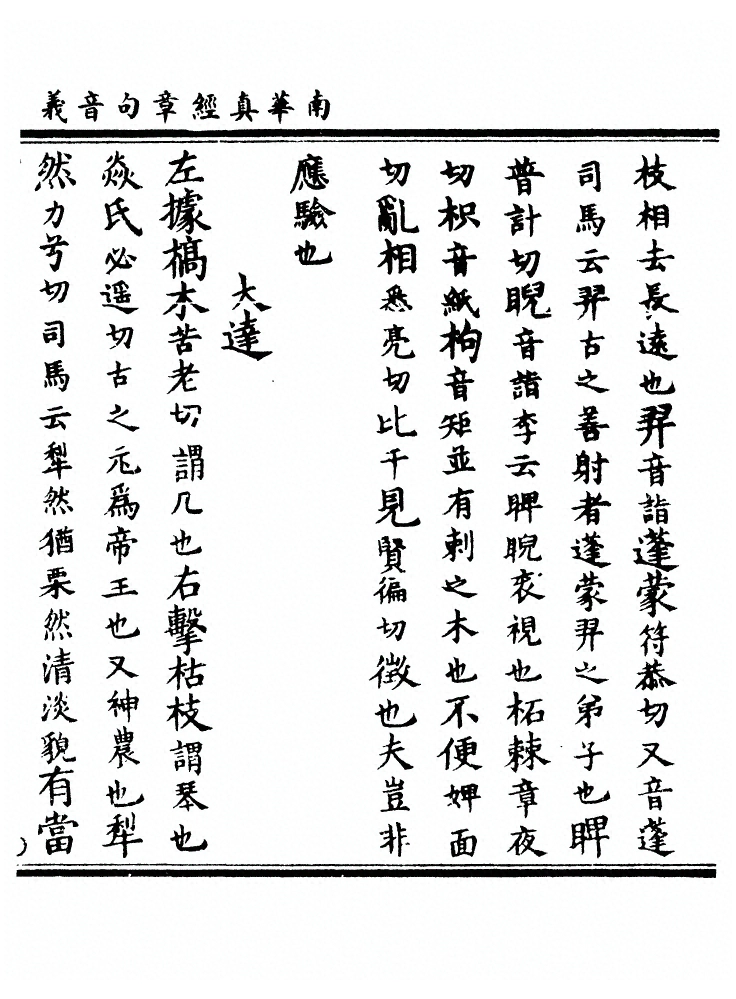 南華真經章句音義
枝相去長遠也羿音詣蓬蒙符恭切又音蓬
司馬云羿古之善射者蓬蒙羿之弟子也睥
普計切睨音詣李云睥睨衺視也柘棘章夜
切枳音紙枸音矩並有刺之木也不便婢面
切亂相悉亮切比干見賢徧切徵也夫豈非
應驗也
大達
左據槁木苦老切謂几也右擊枯枝謂琴也
焱氏必遥切古之帝王也又神農也犁
然力兮切司馬云犁然猶栗然清淡貌有當